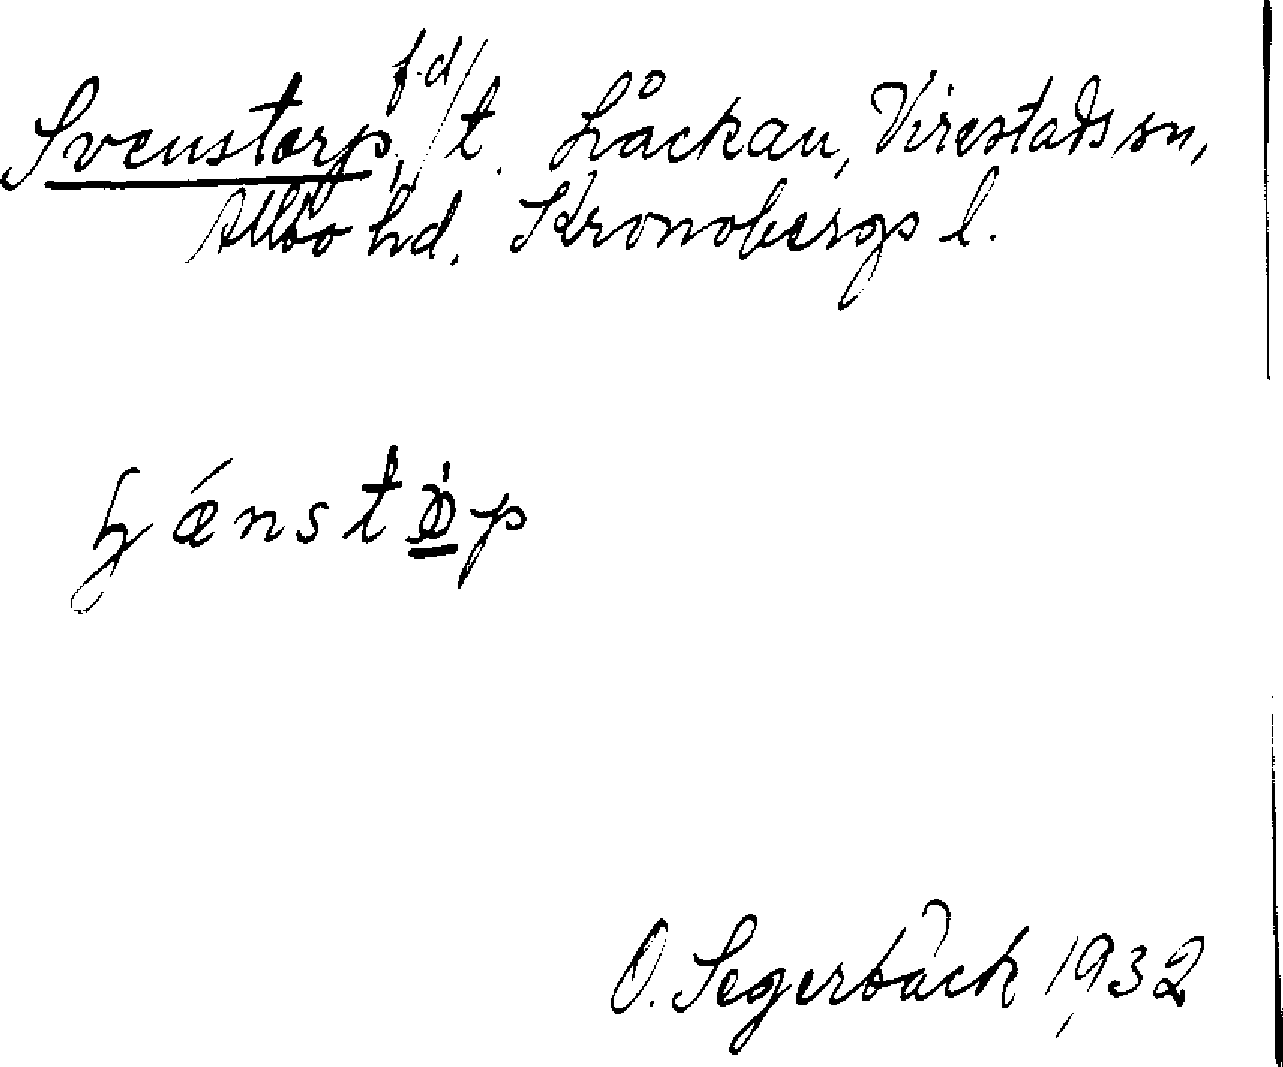 Svenstorp, f.d/t. Låckan, Virestads sn,
Allbo hd. Kronobergs l.
O. Segerbäck 1932